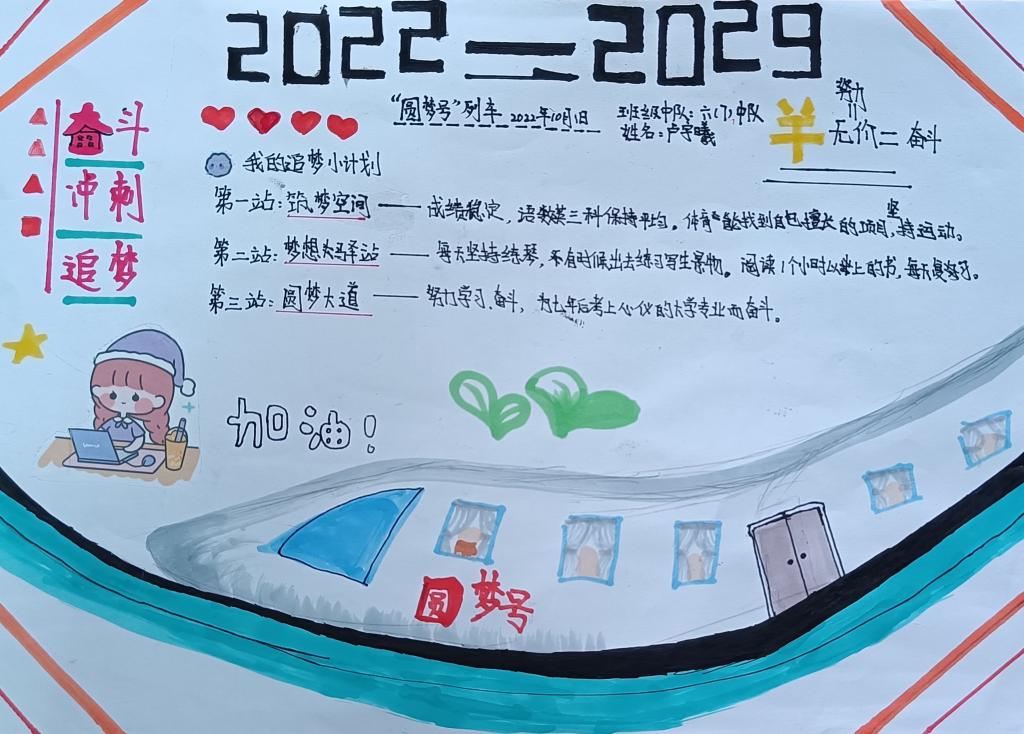 2022——2029
“圆梦号”列车 2022年10月1日
班级中队：六(7)中队
姓名：卢宇曦
努力
无价二 奋斗
奋斗
冲刺
追梦
我的追梦小计划
第一站：筑梦空间——成绩稳定，语数英三科保持平均。体育能找到自己擅长的项目，坚持运动。
第二站：梦想大驿站——每天坚持练琴，不有时候出去练习写生景物。阅读1个小时以上的书，每天复习。
第三站：圆梦大道——努力学习、奋斗，为七年后考上心仪的大学专业而奋斗。
加油！
圆梦号